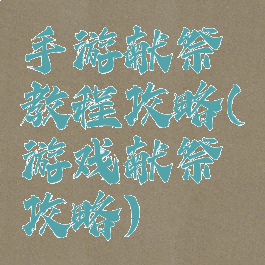 手游献祭
教程攻略(
游戏献祭
攻略)